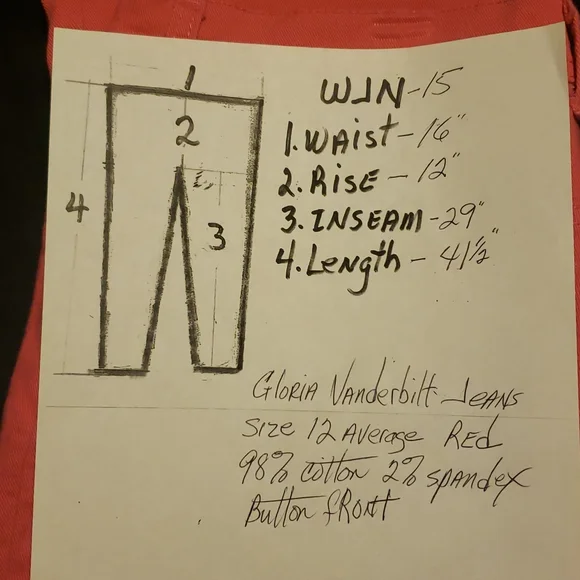 1
2
3
4
WJN-15
1. Waist - 16"
2. Rise - 12"
3. INSEAM - 29"
4. Length - 41 1/2"
Gloria Vanderbilt Jeans
Size 12 Average Red
98% cotton 2% spandex
Button front